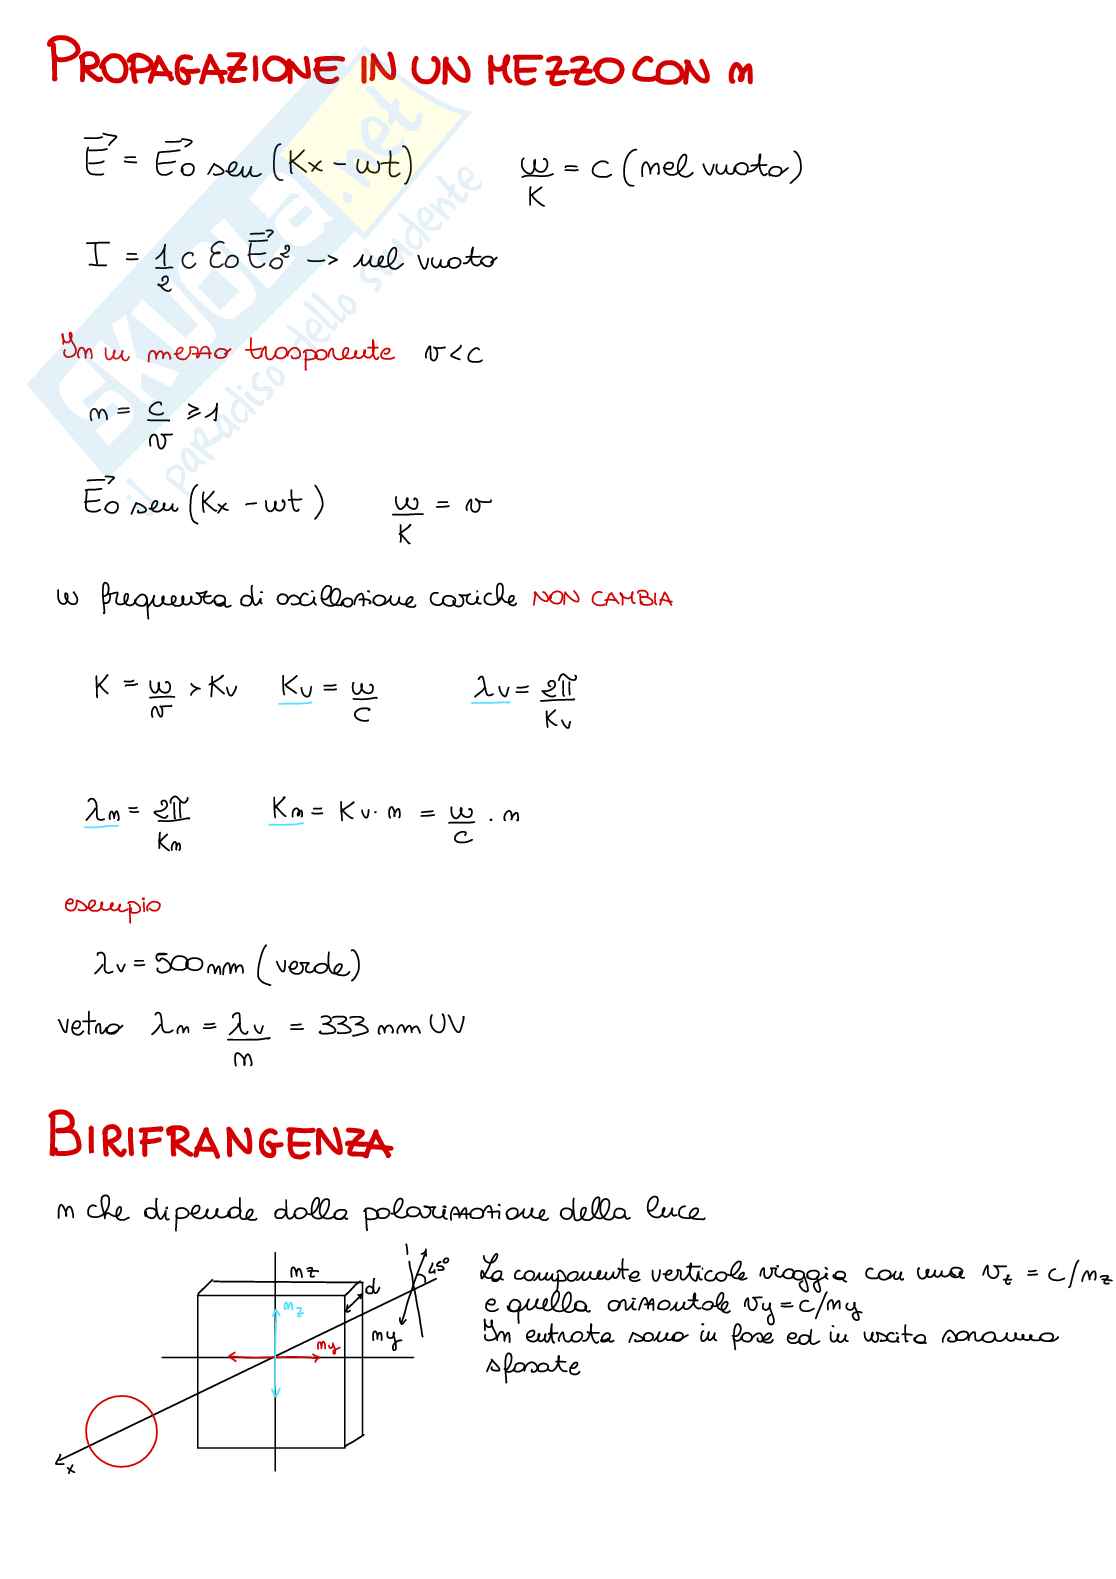 PROPAGAZIONE IN UN MEZZO CON n
E⃗ = E⃗o sen (Kx - wt) w/K = c (nel vuoto)
I = 1/2 c εo E⃗o² -> nel vuoto
In un mezzo trasparente v < c
n = c/v ≥ 1
E⃗o sen (Kx - wt) w/K = v
w frequenza di oscillazione cariche NON CAMBIA
K = w/v > Kv Kv = w/c λv = 2π/Kv
λn = 2π/Kn Kn = Kv · n = w/c · n
esempio
λv = 500 nm (verde)
vetro λn = λv/n = 333 nm UV
BIRIFRANGENZA
n che dipende dalla polarizzazione della luce
nz
d
45°
nz
ny
ny
x
La componente verticale viaggia con una vz = c/nz
e quella orizzontale vy = c/ny
In entrata sono in fase ed in uscita saranno
sfasate
SKUOLA.net
il paradiso dello studente